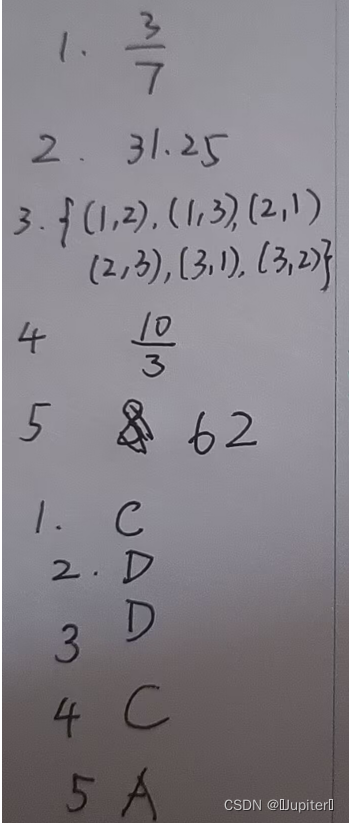 1. 3/7
2. 31.25
3. {(1,2), (1,3), (2,1)
(2,3), (3,1), (3,2)}
4 10/3
5 62
1. C
2. D
3 D
4 C
5 A
CSDN @▯Jupiter▯